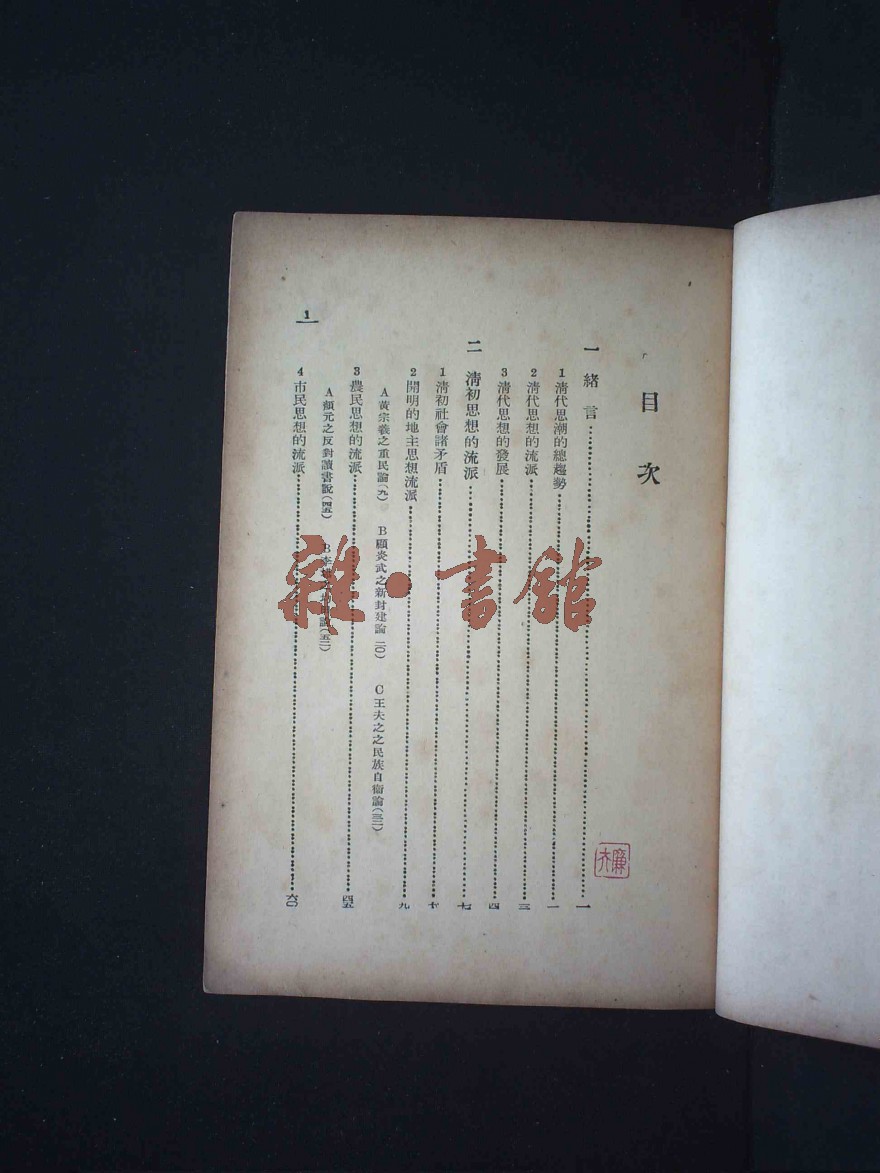 目次
一 緒言 一
1 清代思潮的總趨勢 一
2 清代思想的流派 三
3 清代思想的發展 四
二 清初思想的流派 七
1 清初社會諸矛盾 七
2 開明的地主思想流派 九
A 黃宗羲之重民論(九) B 顧炎武之新封建論(二〇) C 王夫之之民族自衞論(三二)
3 農民思想的流派 四五
A 顏元之反對讀書說(四五) B 李 (五二)
4 市民思想的流派 六〇
1
雜·書館